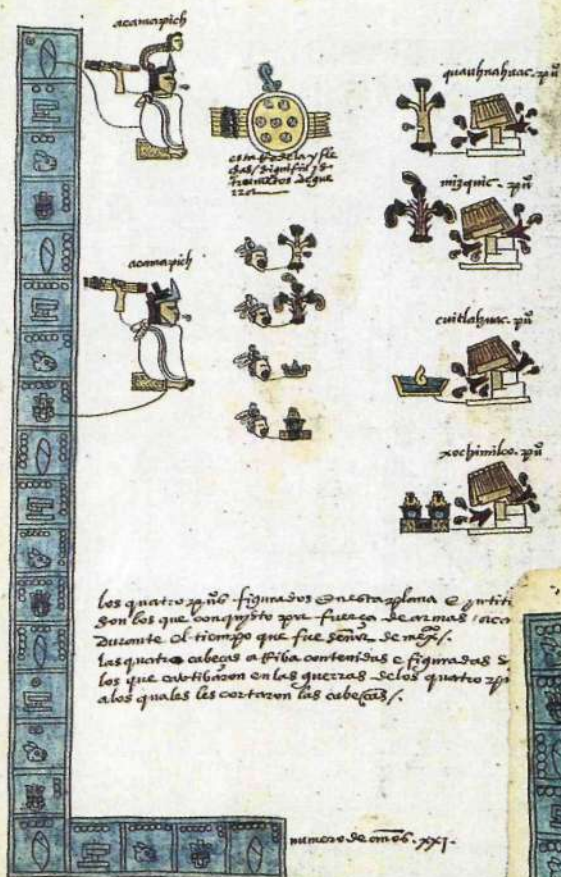 acamapich
quauhnahuac. pũ
esta Rodela y fle
chas / significã ys
trumẽtos de gue
rra
mizquic. pũ
acamapich
cuitlahuac. pũ
xochimilco. pũ
los quatro pũos figurados en esta plana e yntiti
son los que conquisto por fuerça de armas / aca
durante el tiempo que fue señor de mexico /.
las quatro cabeças a Riba contenidas e figuradas s
los que cautibaron en las guerras de los quatro pu
a los quales les cortaron las cabeças /.
numero de años. xxi.